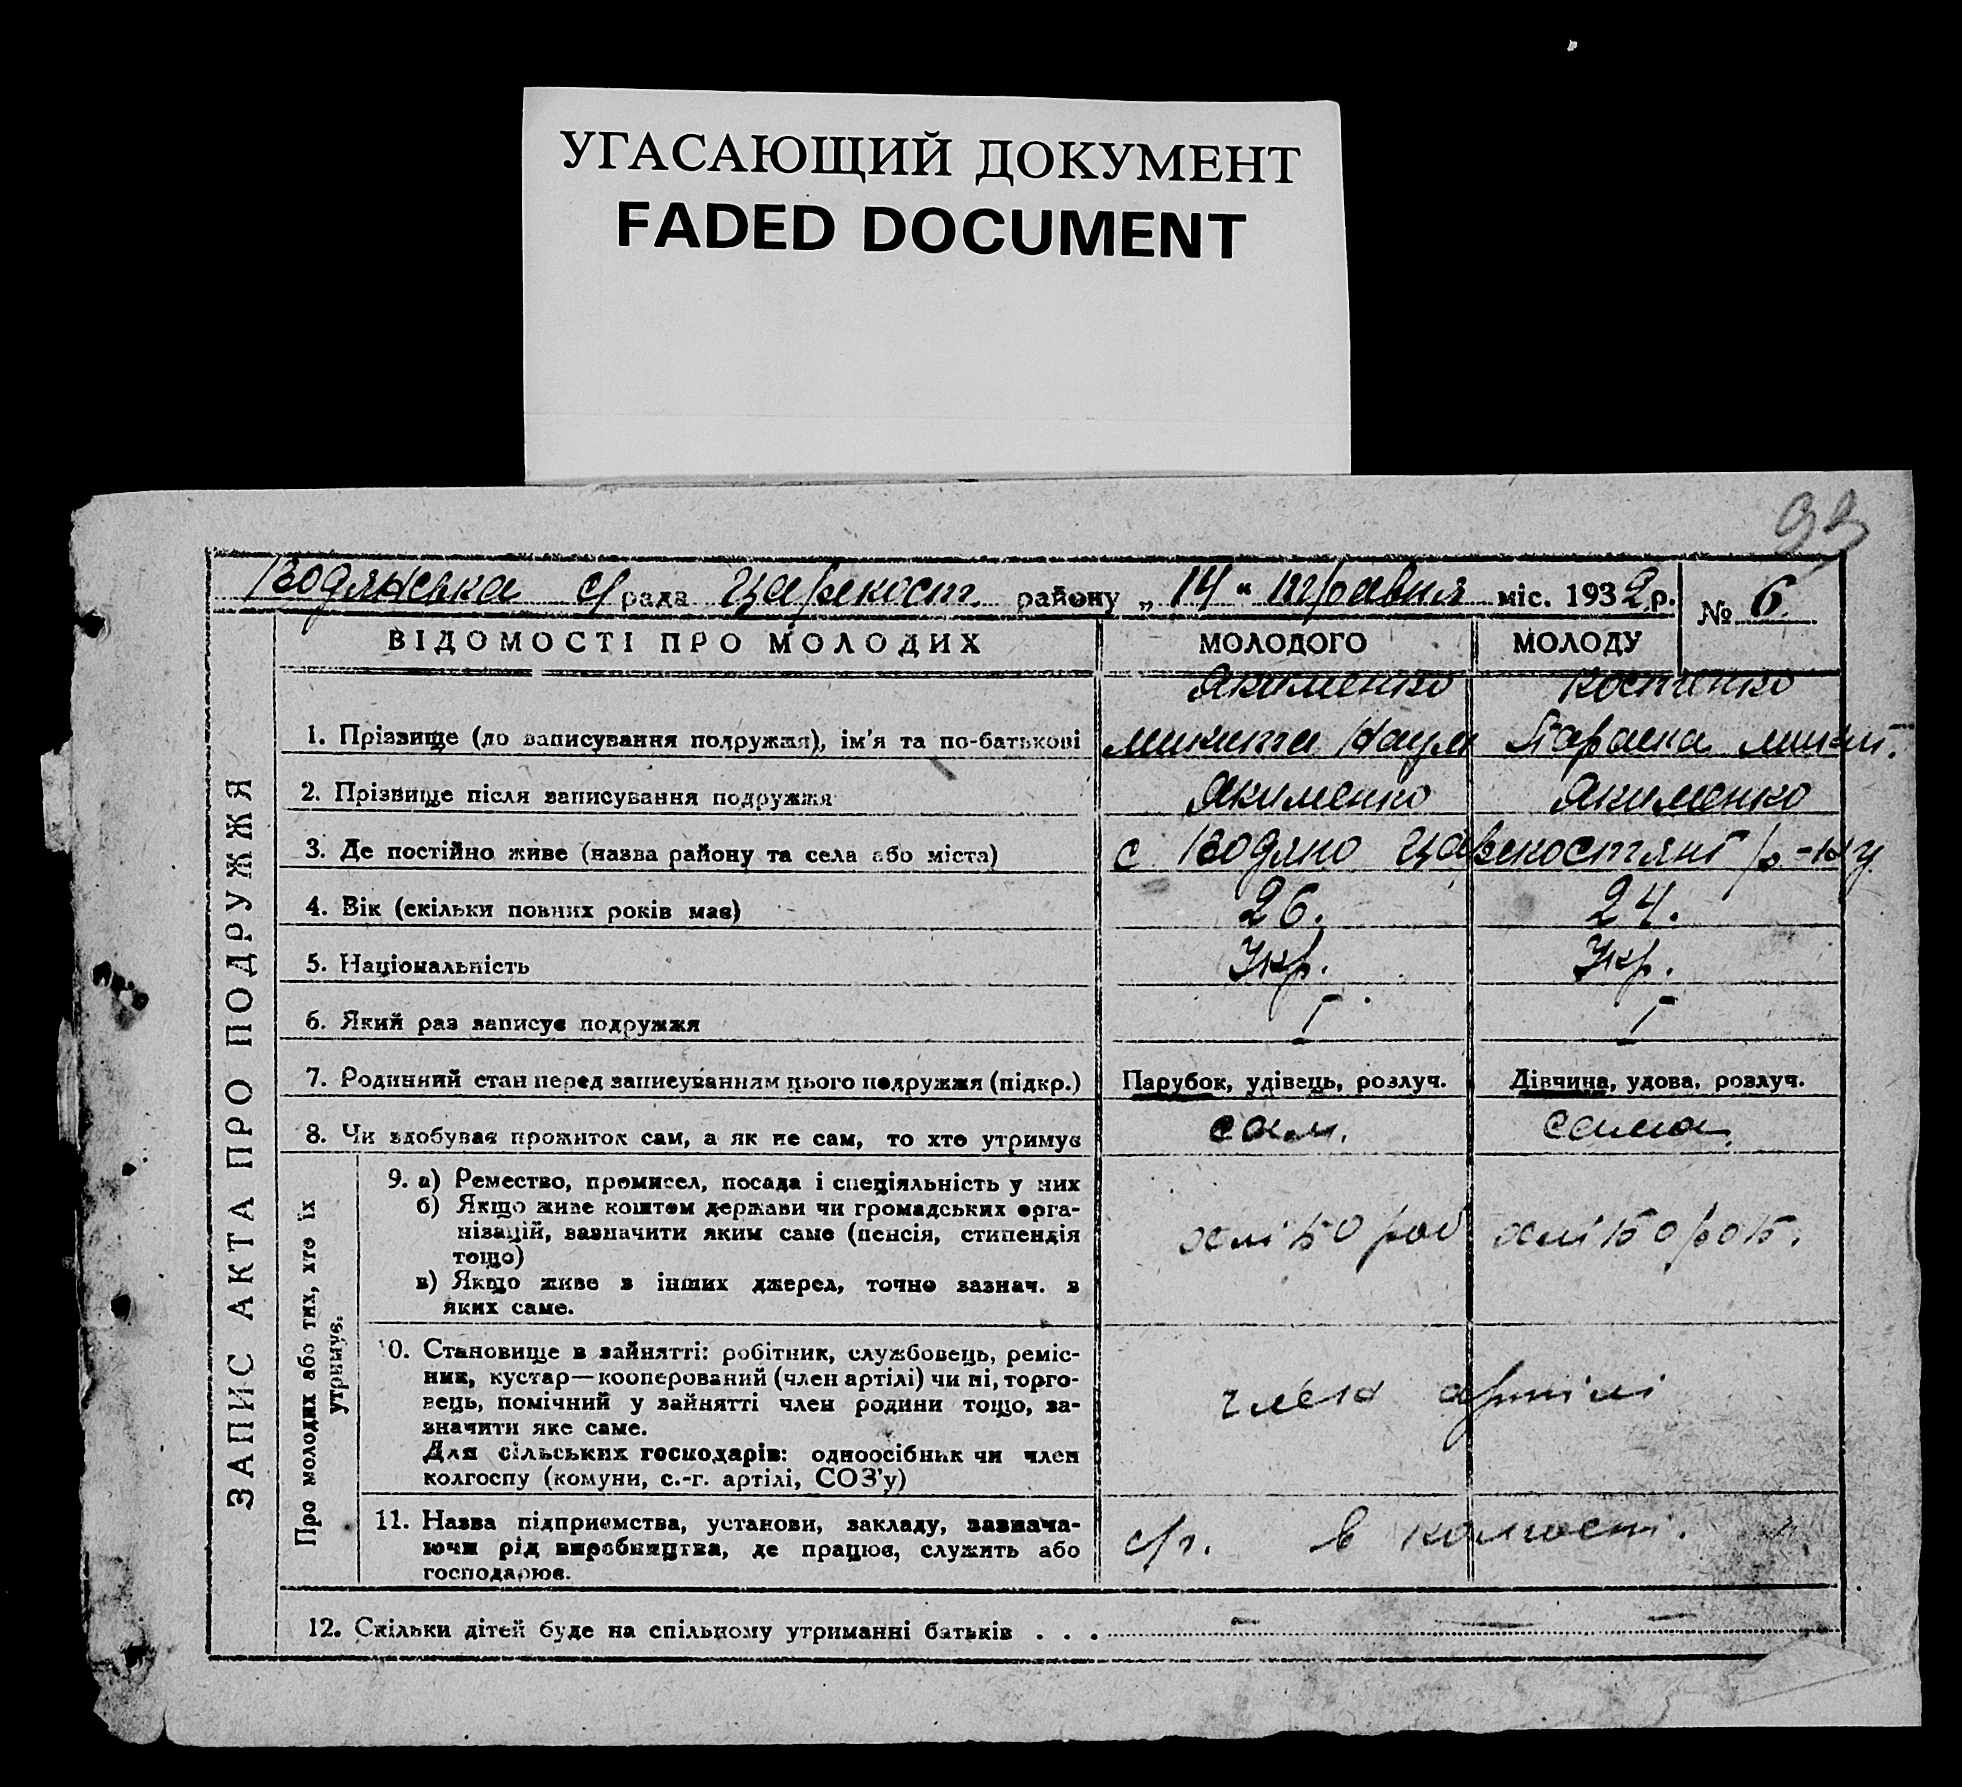 УГАСАЮЩИЙ ДОКУМЕНТ
FADED DOCUMENT
93
Водянська с/рада Царекост. району „14“ травня міс. 1932 р. № 6
ЗАПИС АКТА ПРО ПОДРУЖЖЯ
ВІДОМОСТІ ПРО МОЛОДИХ МОЛОДОГО МОЛОДУ
Якименко Костенко
1. Прізвище (до записування подружжя), ім'я та по-батькові Микита Наум Параска Микит.
2. Прізвище після записування подружжя Якименко Якименко
3. Де постійно живе (назва району та села або міста) с Водяно Царекостянт р-ну
4. Вік (скільки повних років має) 26. 24.
5. Національність Укр. Укр.
6. Який раз записує подружжя I I
7. Родинний стан перед записуванням цього подружжя (підкр.) Парубок, удівець, розлуч. Дівчина, удова, розлуч.
8. Чи здобуває прожиток сам, а як не сам, то хто утримує сам. сама.
Про молодих або тих, хто їх
утримує.
9. а) Ремество, промисел, посада і спеціяльність у них
б) Якщо живе коштом держави чи громадських орга-
нізацій, зазначити яким саме (пенсія, стипендія
тощо)
в) Якщо живе з інших джерел, точно зазнач. з
яких саме.
хлібороб хлібороб.
10. Становище в зайнятті: робітник, службовець, реміс-
ник, кустар—кооперований (член артілі) чи ні, торго-
вець, помічний у зайнятті член родини тощо, за-
значити яке саме.
Для сільських господарів: одноосібник чи член
колгоспу (комуни, с.-г. артілі, СОЗ'у)
член артілі
11. Назва підприємства, установи, закладу, зазнача-
ючи рід виробництва, де працює, служить або
господарює.
с/г. в колгосп.
12. Скільки дітей буде на спільному утриманні батьків . . . — — —